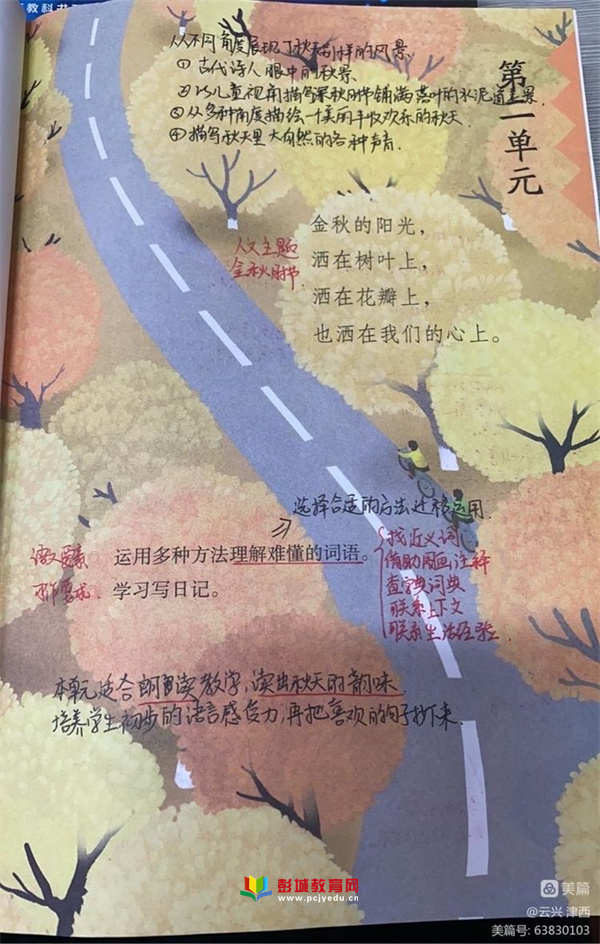 教科书
从不同角度展现了秋天别样的风景
①古代诗人眼中的秋景
②以儿童视角描写深秋时节铺满落叶的水泥道美景
③从多种角度描绘一个美丽丰收欢乐的秋天
④描写秋天里大自然的各种声音
第
单元
金秋的阳光，
洒在树叶上，
洒在花瓣上，
也洒在我们的心上。
人文主题
金秋时节
选择合适的方法迁移运用
运用多种方法理解难懂的词语。
学习写日记。
找近义词
借助图画注释
查字典词典
联系上下文
联系生活经验
本单元适合朗读教学，读出秋天的韵味
培养学生初步的语言感受力，再把喜欢的句子抄下来
彭城教育网
www.pcjyedu.cn
美篇
@云兴 津西
美篇号: 63830103